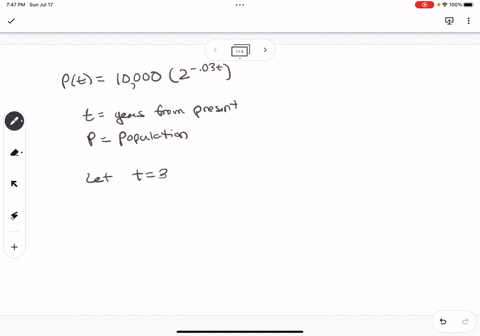 7:47 PM Sun Jul 17
100%
P(t) = 10,000 (2^-.03t)
t = years from present
P = Population
Let t = 3